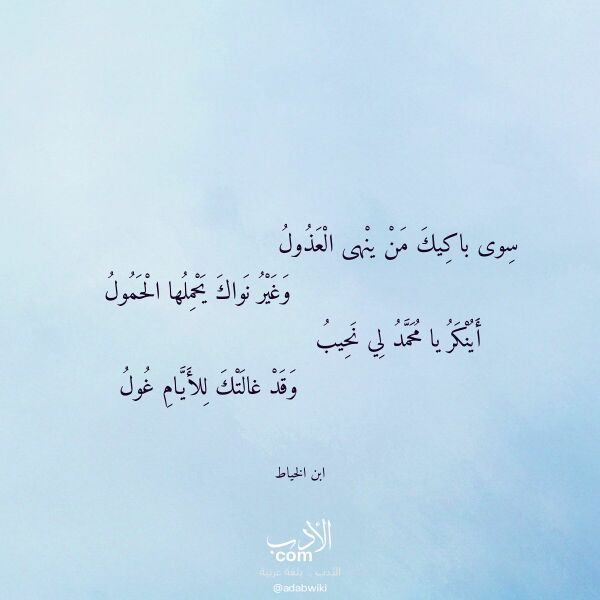 سِوى باكِيكَ مَنْ يَنْهى الْعَذُولُ
وَغَيْرُ نَواكَ يَحْمِلُها الْحَمُولُ
أَيُنْكَرُ يا مُحَمَّدُ لِي نَحِيبُ
وَقَدْ غالَتْكَ لِلأَيَّامِ غُولُ
ابن الخياط
الأدب
com
الأدب .. بلغة عربية
@adabwiki